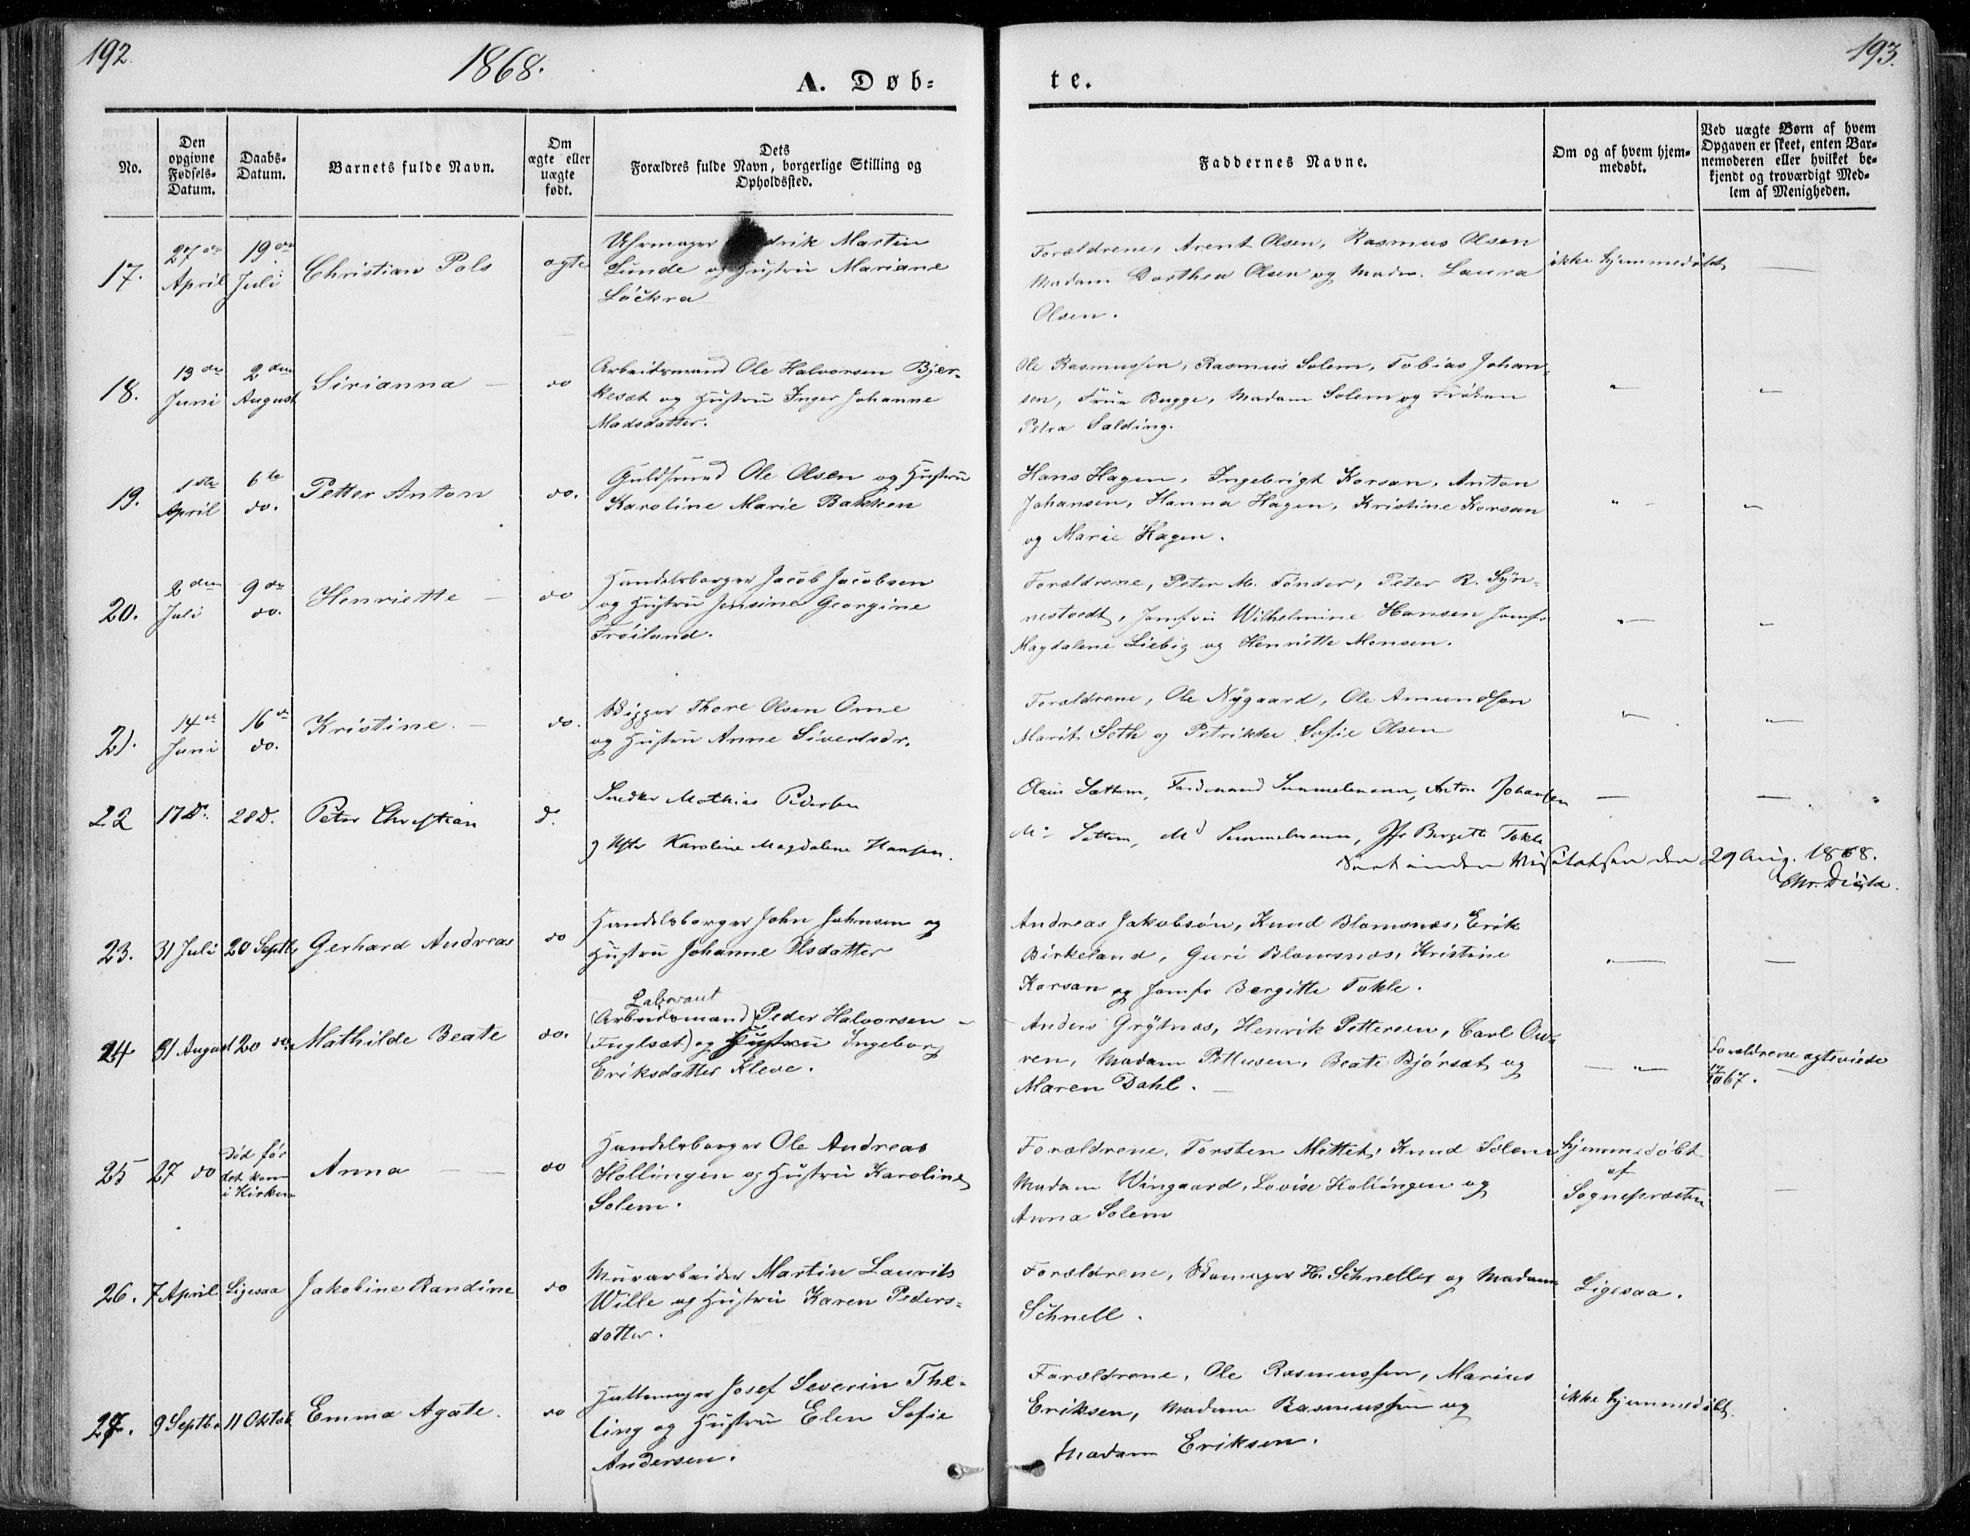 192.
1868.
A. Døb=
te.
193.
No.
Den
opgivne
Fødsels-
Datum.
Daabs-
Datum.
Barnets fulde Navn.
Om
ægte eller
uægte
født.
Dets
Forældres fulde Navn, borgerlige Stilling og
Opholdssted.
Faddernes Navne.
Om og af hvem hjem-
medøbt.
Ved uægte Børn af hvem
Opgaven er skeet, enten Bar-
nemoderen eller hvilket be-
kjendt og troværdigt Med-
lem af Menigheden.
17.
27de
April
19de
Juli
Christian Pols
ægte
Uhrmager drik Martin
Lunde og Hustru Mariane
Löckra
Forældrene, Arent Olsen, Rasmus Olsen
Madam Dorthea Olsen og Madm. Laura
Olsen.
ikke hjemmedøbt
18.
13de
Juni
2den
August
Sirianna
do
Arbeidsmand Ole Halvorsen Bjer-
keset og Hustru Inger Johanne
Madsdatter.
Ole Rasmussen, Rasmus Solem, Tobias Johan-
sen, Frue Bugge, Madam Solem og Frøken
Petra Salding.
19.
1ste
April
6te
do.
Petter Anton
do.
Guldsmed Ole Olsen og Hustru
Karoline Marie Bakken
Hans Hagen, Ingebrigt Korsan, Anton
Johansen, Hanna Hagen, Kristine Korsan
og Marie Hagen.
20.
2den
Juli
9de
do.
Henriette
do
Handelsborger Jacob Jacobsen
og Hustru Jensine Georgine
Frøiland.
Forældrene, Peter M. Tønder, Peter R. Syn-
nestvedt, Jomfru Wilhelmine Hansen Jomfr
Magdalene Liebig og Henriette Monsen.
21.
14de
Juni
16de
do.
Kristine.
do.
Skipper Thore Olsen Orne
og Hustru Anne Sivertsdr.
Forældrene, Ole Nygaard, Ole Amundsen
Marit Seth og Petrikke Sofie Olsen
22
17 d.
28 d.
Peter Christian
d.
Snedker Mathias Pedersen
og Hstr Karoline Magdalene Hansen.
Olaus Sættem, Ferdinand Summelmann, Anton Johansen
Md Settem, Md Summelmann, Jfr Bergitte Tokle
Seet under Visitatsen den 29 Aug. 1868.
23.
31 Juli
20 Septbr
Gerhard Andreas
do
Handelsborger John Johnsen og
Hustru Johanne Olsdatter
Andreas Jakobsön, Knud Blomsnes, Erik
Birkeland, Guri Blomsnes, Kristine
Korsan og Jomfr Bergitte Tokle.
24
31 August
20 do.
Mathilde Beate
do.
Laborant
(Arbeidsmand) Peder Halvorsen
(Fuglset) og Hustru Ingeborg
Eriksdatter Kleve.
Anders Grytnes, Henrik Pettersen, Carl Ow-
ren, Madam Pettersen, Beate Bjørset og
Maren Dahl.
Forældrene ægteviede
67.
25
27 do
Død før
det kom
i Kirken
Anna
do
Handelsborger Ole Andreas
Hollingen og Hustru Karoline
Solem.
Forældrene, Torsten Mettet, Knud Solem
Madam Wingaard, Lovise Hollingen og
Anna Solem
Hjemmedøbt
af
Sognepræsten
26.
7 April
Ligesaa
Jakobine Randine
do
Murarbeider Martin Laurits
Wille og Hustru Karen Peders-
datter.
Forældrene, H. Schneller og Madam
Schnell.
Ligesaa.
27.
9 Septbr
11 Oktob
Emma Agate.
do
Hattemager Josef Severin The-
ling og Hustru Elen Sofie
Andersen.
Forældrene, Ole Rasmussen, Marius
Eriksen, Madam Rasmussen og
Madam Eriksen.
ikke hjemmedøbt.